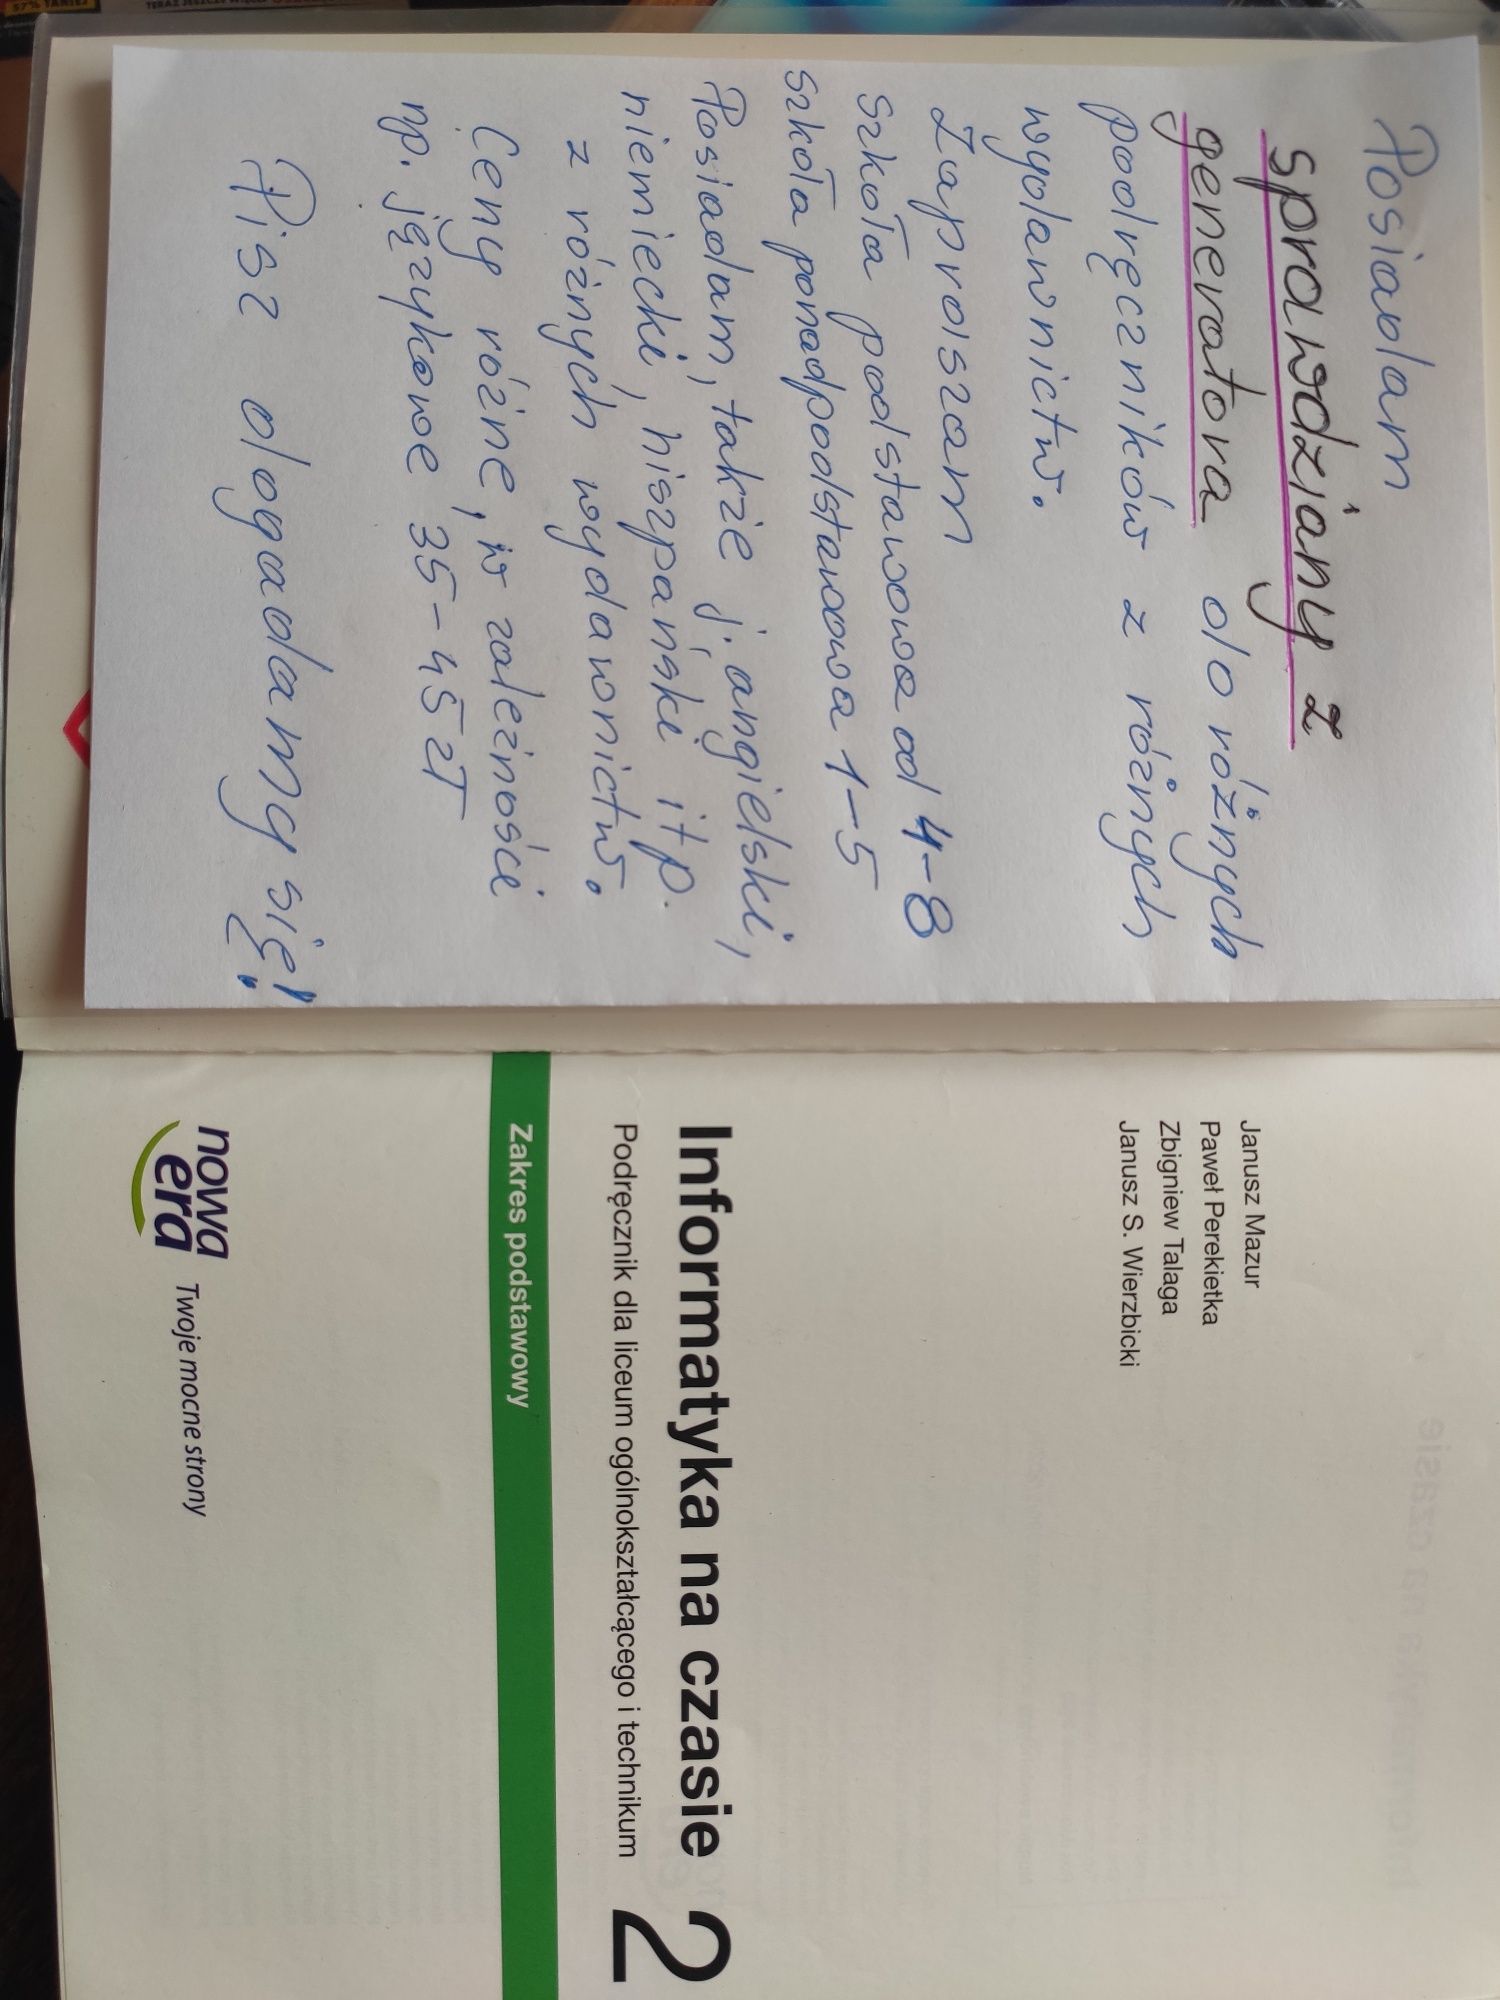 Posiadam
sprawdziany z
generatora do różnych
podręczników z różnych
wydawnictw.
Zapraszam
szkoła podstawowa od 4-8
szkoła ponadpodstawowa 1-5
Posiadam, także j. angielski,
niemiecki, hiszpański itp.
z różnych wydawnictw.
Ceny różne, w zależności
np. językowe 35-45 zł
Pisz dogadamy się!
Janusz Mazur
Paweł Perekietka
Zbigniew Talaga
Janusz S. Wierzbicki
Informatyka na czasie 2
Podręcznik dla liceum ogólnokształcącego i technikum
Zakres podstawowy
nowa
era Twoje mocne strony